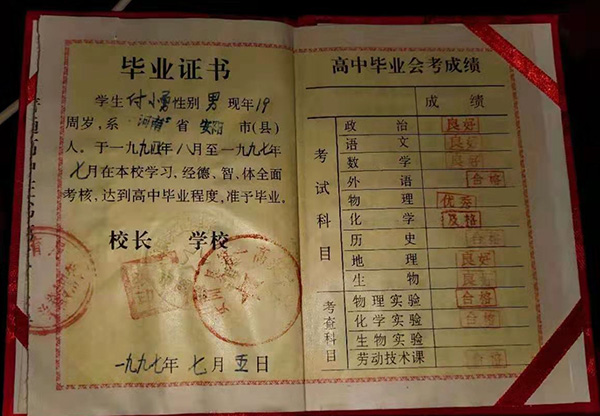 毕业证书
学生付小勇性别男现年19
周岁,系河南省安阳市(县)
人,于一九九四年八月至一九九七年
七月在本校学习、经德、智、体全面
考核,达到高中毕业程度,准予毕业。
校长 学校
一九九七年七月五日
高中毕业会考成绩
成绩
考试科目
政治 良好
语文 良好
数学 良好
外语 合格
物理 优秀
化学 及格
历史 合格
地理 良好
生物 良好
考查科目
物理实验 合格
化学实验 合格
生物实验
劳动技术课 合格